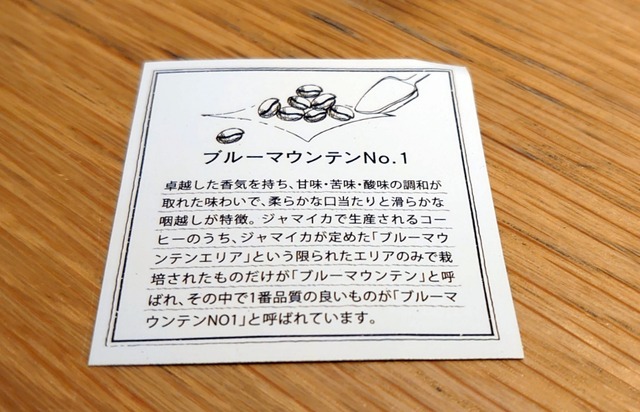 ブルーマウンテンNo.1
卓越した香気を持ち、甘味・苦味・酸味の調和が
取れた味わいで、柔らかな口当たりと滑らかな
咽越しが特徴。ジャマイカで生産されるコー
ヒーのうち、ジャマイカが定めた「ブルーマウ
ンテンエリア」という限られたエリアのみで栽
培されたものだけが「ブルーマウンテン」と呼
ばれ、その中で1番品質の良いものが「ブルーマ
ウンテンNO1」と呼ばれています。